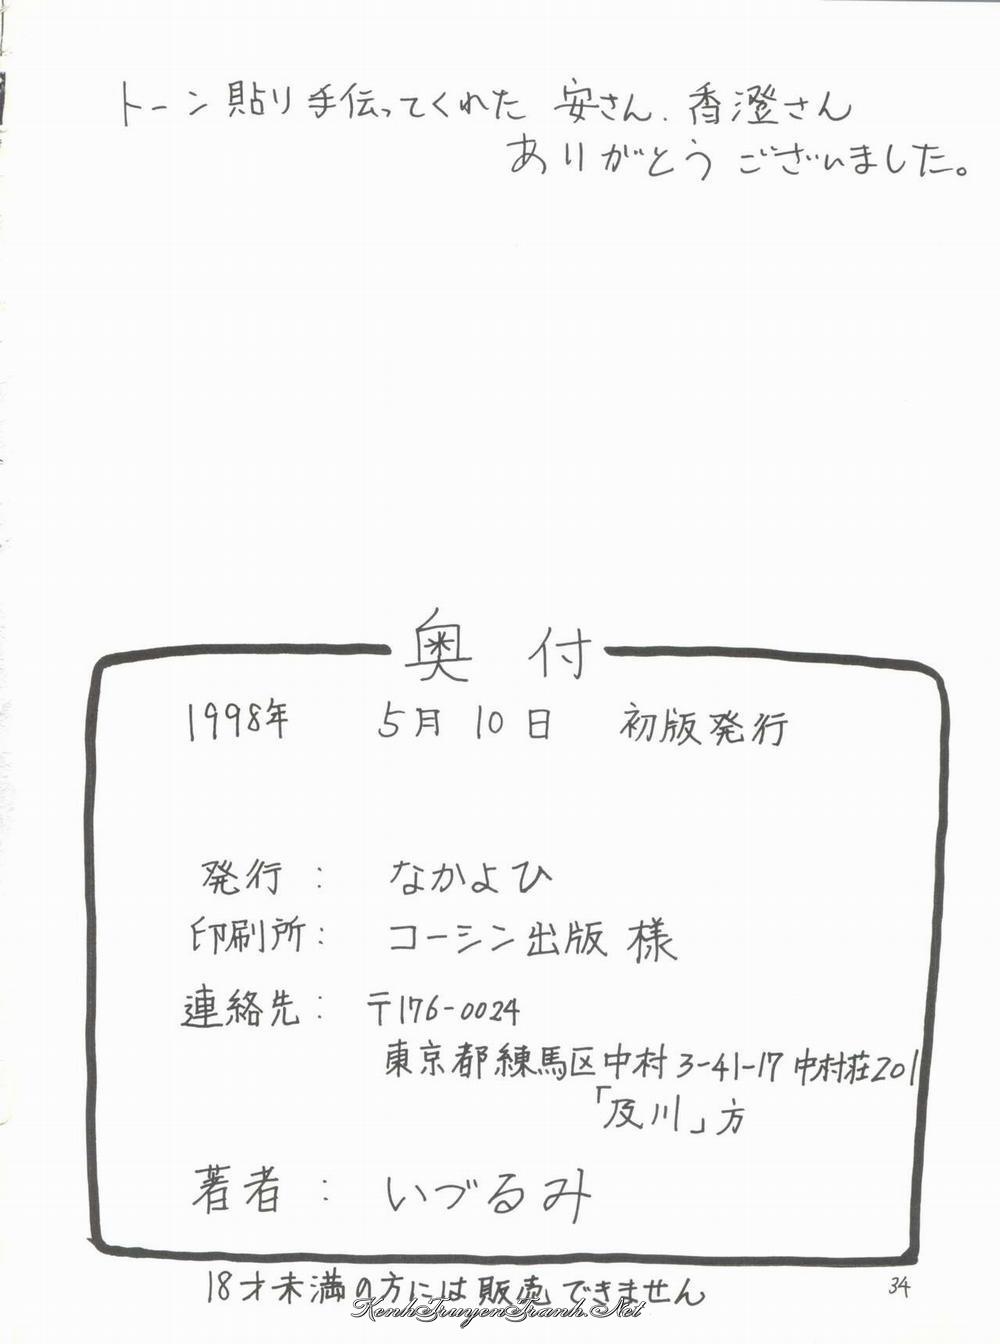 トーン貼り手伝ってくれた 安さん、香澄さん
ありがとうございました。
奥付
1998年 5月10日 初版発行
発行： なかよひ
印刷所： コーシン出版 様
連絡先： 〒176-0024
東京都練馬区中村3-41-17 中村荘201
「及川」方
著者： いづるみ
18才未満の方には販売できません
34
KenhTruyenTranh.Net